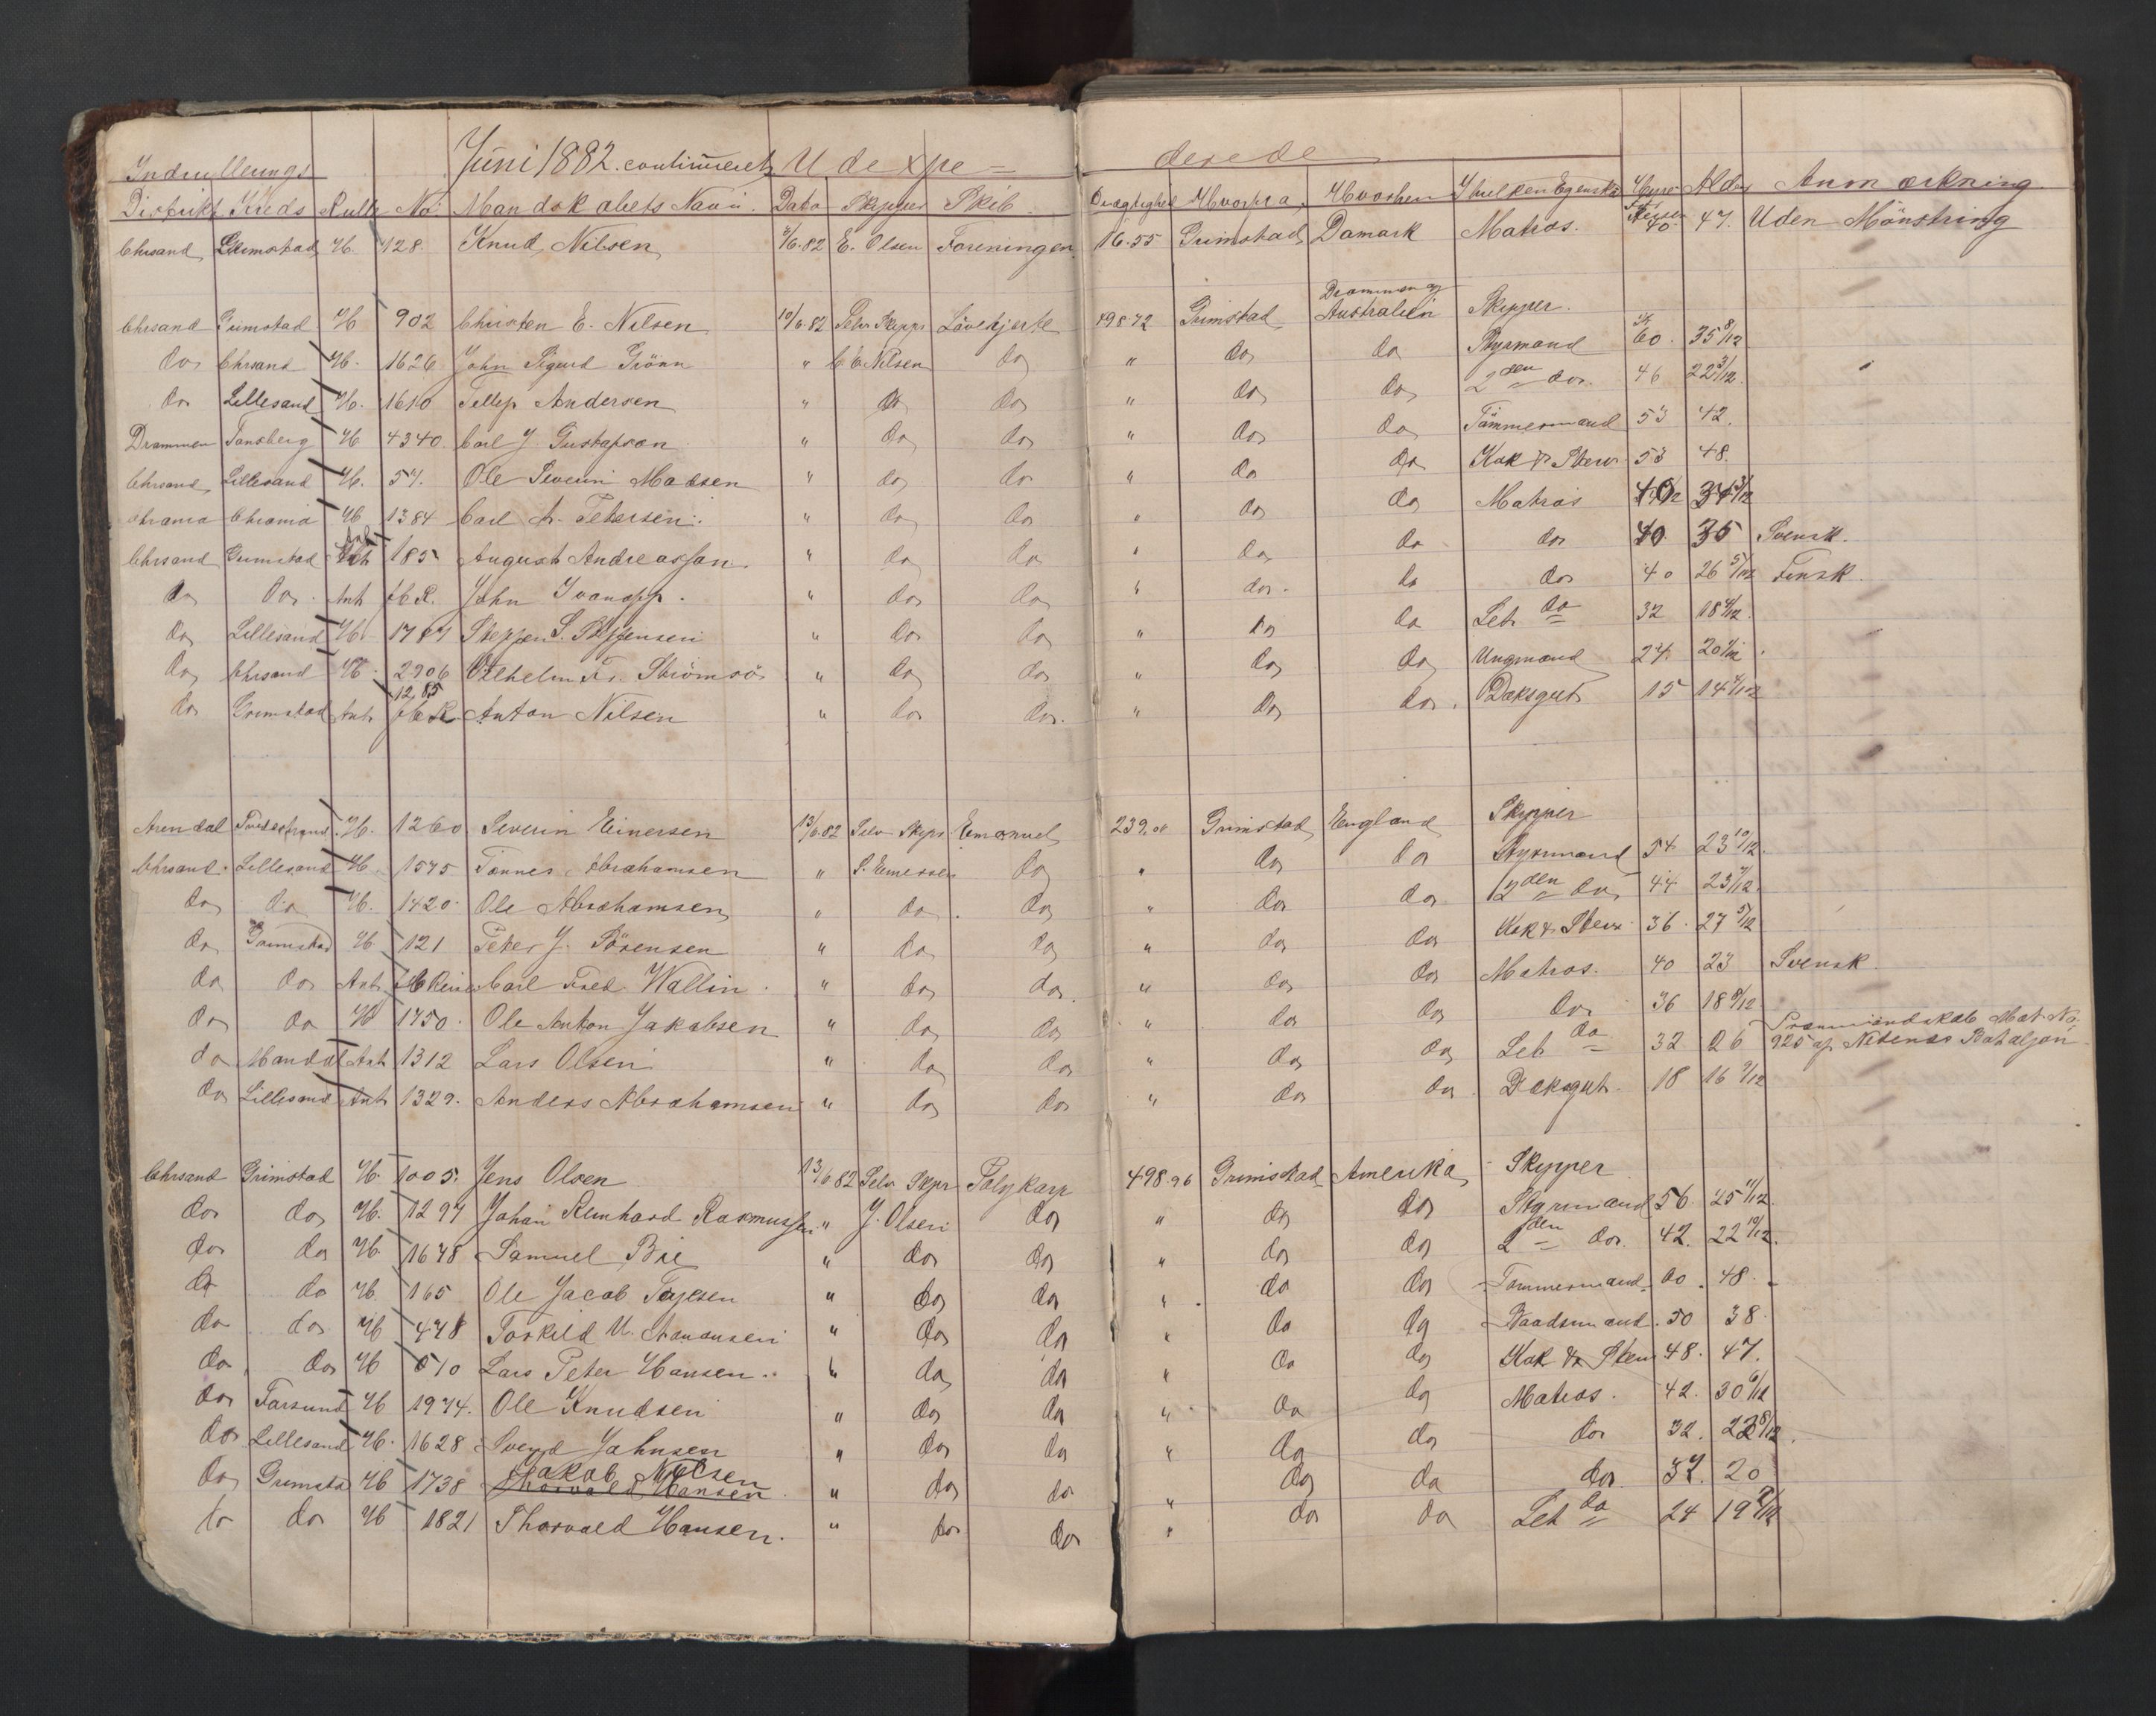 Juni 1882. continueret Udexpe = derede
Indrullerungs
Distrikt Kreds Rulle No: Mandskabets Navn. Dato Skipper Skib Drægtighed Hvorfra Hvorhen I hvilken Egenskab Hyre Alder Anmærkning
Chrsand Grimstad H. 128. Knud Nilsen 8/6.82 E. Olsen Foreningen 16.55 Grimstad Damark Matros. 40. 47. Uden Mönstring
Drammen og
Chrsand Grimstad H 902 Christen E. Nilsen 10/6.82 Selv Skippr Lövehjerte 198.72 Grimstad Australien Skipper.
do Chrsand H. 1626 John Sigurd Grönn " C E Nilsen do " do do Styrmand 60. 35 8/12
do Lillesand H. 1610 Tellef Andersen " do do " do do 2den do. 46 22 3/12.
Drammen Tønsberg H 4340. Carl J. Gustafson " do do " do do Tömmermand 53 42.
Chrsand Lillesand H. 57. Ole Severin Madsen " do do " do do Kok & Stew. 53 48.
Chrania Chrania H 1384 Carl A. Petersen. " do do " do do Matros 40
Chrsand Grimstad Anh 185 August Andreassan. " do do " do do do 40 35 Svensk.
do do. Anh fbR. John Ivanoff. " do do " do. do do 40 26 5/12 Finsk.
do Lillesand H. 1787 Steffen S. Steffensen " do do " do do Let do 32 18 4/12.
do Chrsand H. 2906 Vilhelm Fr. Strömsö " do do " do do Ungmand 24.
12,85
do Grimstad Anh fbR. Anton Nilsen " do do. " do do. Däksgut 15
Arendal Tvedestrand H. 1260 Severin Einersen 13/6.82 Selv Skipr Emanuel 239.08 Grimstad England Skipper
Chrsand. Lillesand H. 1575 Tönnes Abrahamsen " S. Einersen do " do do Styrmand 54 23 10/12.
do do H. 1420. Ole Abrahamsen " do. do " do do 2den do 44 23 7/12.
do Grimstad H 121 Peter J. Sörensen " do do " do do Kok & Stew. 36. 27 5/12
do do Anh Carl Fred. Wallin. " do do. " do do Matros. 40 23 Svensk.
do do H 1750. Ole Anton Jakobsen " do do " do do do 36 18 8/12
do Mandal Anh 1312 Lars Olsen " do do " do do Let do 32 26 Mat. No 925 af Nedenæs Bataljon.
do Lillesand Anh 1329. Anders Abrahamsen " do do " do do Däksgut. 18 16 7/12
Chrsand Grimstad H. 1005. Jens Olsen 13/6.82 Selv Skipr Polykarp 498.96 Grimstad Amerika Skipper
do do H. 1297 Johan Reinhard Rasmussen " J. Olsen do " do do Styrmand 56 25 11/12.
do do H. 1678 Samuel Bie " do do " do do 2den do. 42. 22 10/12.
do do H. 165 Ole Jacob Terjesen " do do " do do Tömmermand 60. 48.
do do H 478 Torkild U. Aanonsen " do do " do do Baadsmand. 50 38.
do. do H 510 Lars Peter Hansen.. " do do " do do Kok & Stew 48. 47.
do Farsund H 1974. Ole Knudsen " do do " do do Matros. 42. 30 6/12
do Lillesand H. 1628 Svend Johnsen " do do " do do do 32.
Jakob Nilsen
do Grimsta H 1738 Thorvald Hansen. " do do " do do do. 32. 20
do do H 1821 Thorvald Hansen. " do do " do do Let do 24